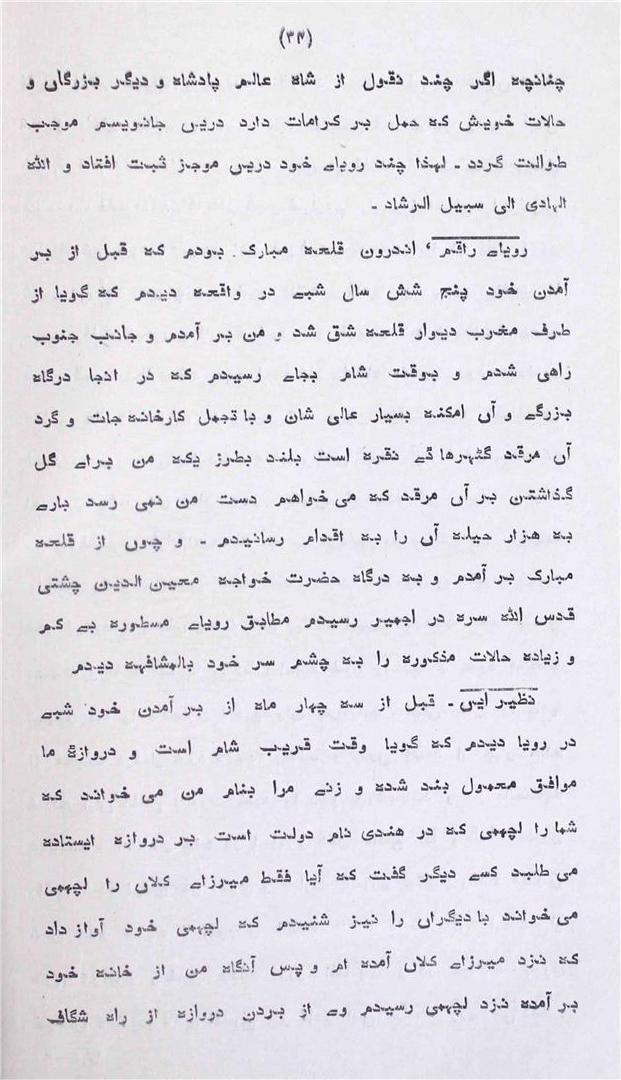 (۳۴)
چنانچه اگر چند نقول از شاه عالم پادشاه و دیگر بزرگان و
حالات خویش که حمل بر کرامات دارد دریں جانویسم موجب
طوالت گردد ـ لهذا چند رویاے خود دریں موجز ثبت افتاد و الله
الهادی الی سبیل الرشاد ـ
رویاے راقم ٬ اندرون قلعه مبارک بودم که قبل از بر
آمدن خود پنج شش سال شبے در واقعه دیدم که گویا از
طرف مغرب دیوار قلعه شق شد و من بر آمدم و جانب جنوب
راهی شدم و بوقت شام بجاے رسیدم که در انجا درگاه
بزرگے و آں امکنه بسیار عالی شان و با تجمل کارخانه جات و گرد
آں مرقد کٹهرهاۓ نقره است بلند بطرز یکه من براے گل
گذاشتن بر آں مرقد که می خواهم دست من نمی رسد بارے
به هزار حیله آں را به اقدام رسانیدم ـ و چوں از قلعه
مبارک بر آمدم و به درگاه حضرت خواجه معین الدین چشتی
قدس الله سره در اجمیر رسیدم مطابق رویاے مسطوره بے کم
و زیاده حالات مذکوره را به چشم سر خود بالمشافهه دیدم
نظیر ایں ـ قبل از سه چهار ماه از بر آمدن خود شبے
در رویا دیدم که گویا وقت قریب شام است و دروازۀ ما
موافق معمول بند شده و زنے مرا بنام من می خواند که
شما را لچهمی که در هندی نام دولت است بر دروازه ایستاده
می طلبد کسے دیگر گفت که آیا فقط میرزاے کلاں را لچهمی
می خواند با دیگراں را نیز شنیدم که لچهمی خود آواز داد
که نزد میرزاے کلاں آمده ام و پس آنگاه من از خانه خود
بر آمده نزد لچهمی رسیدم وے از بردن دروازه از راه شگاف